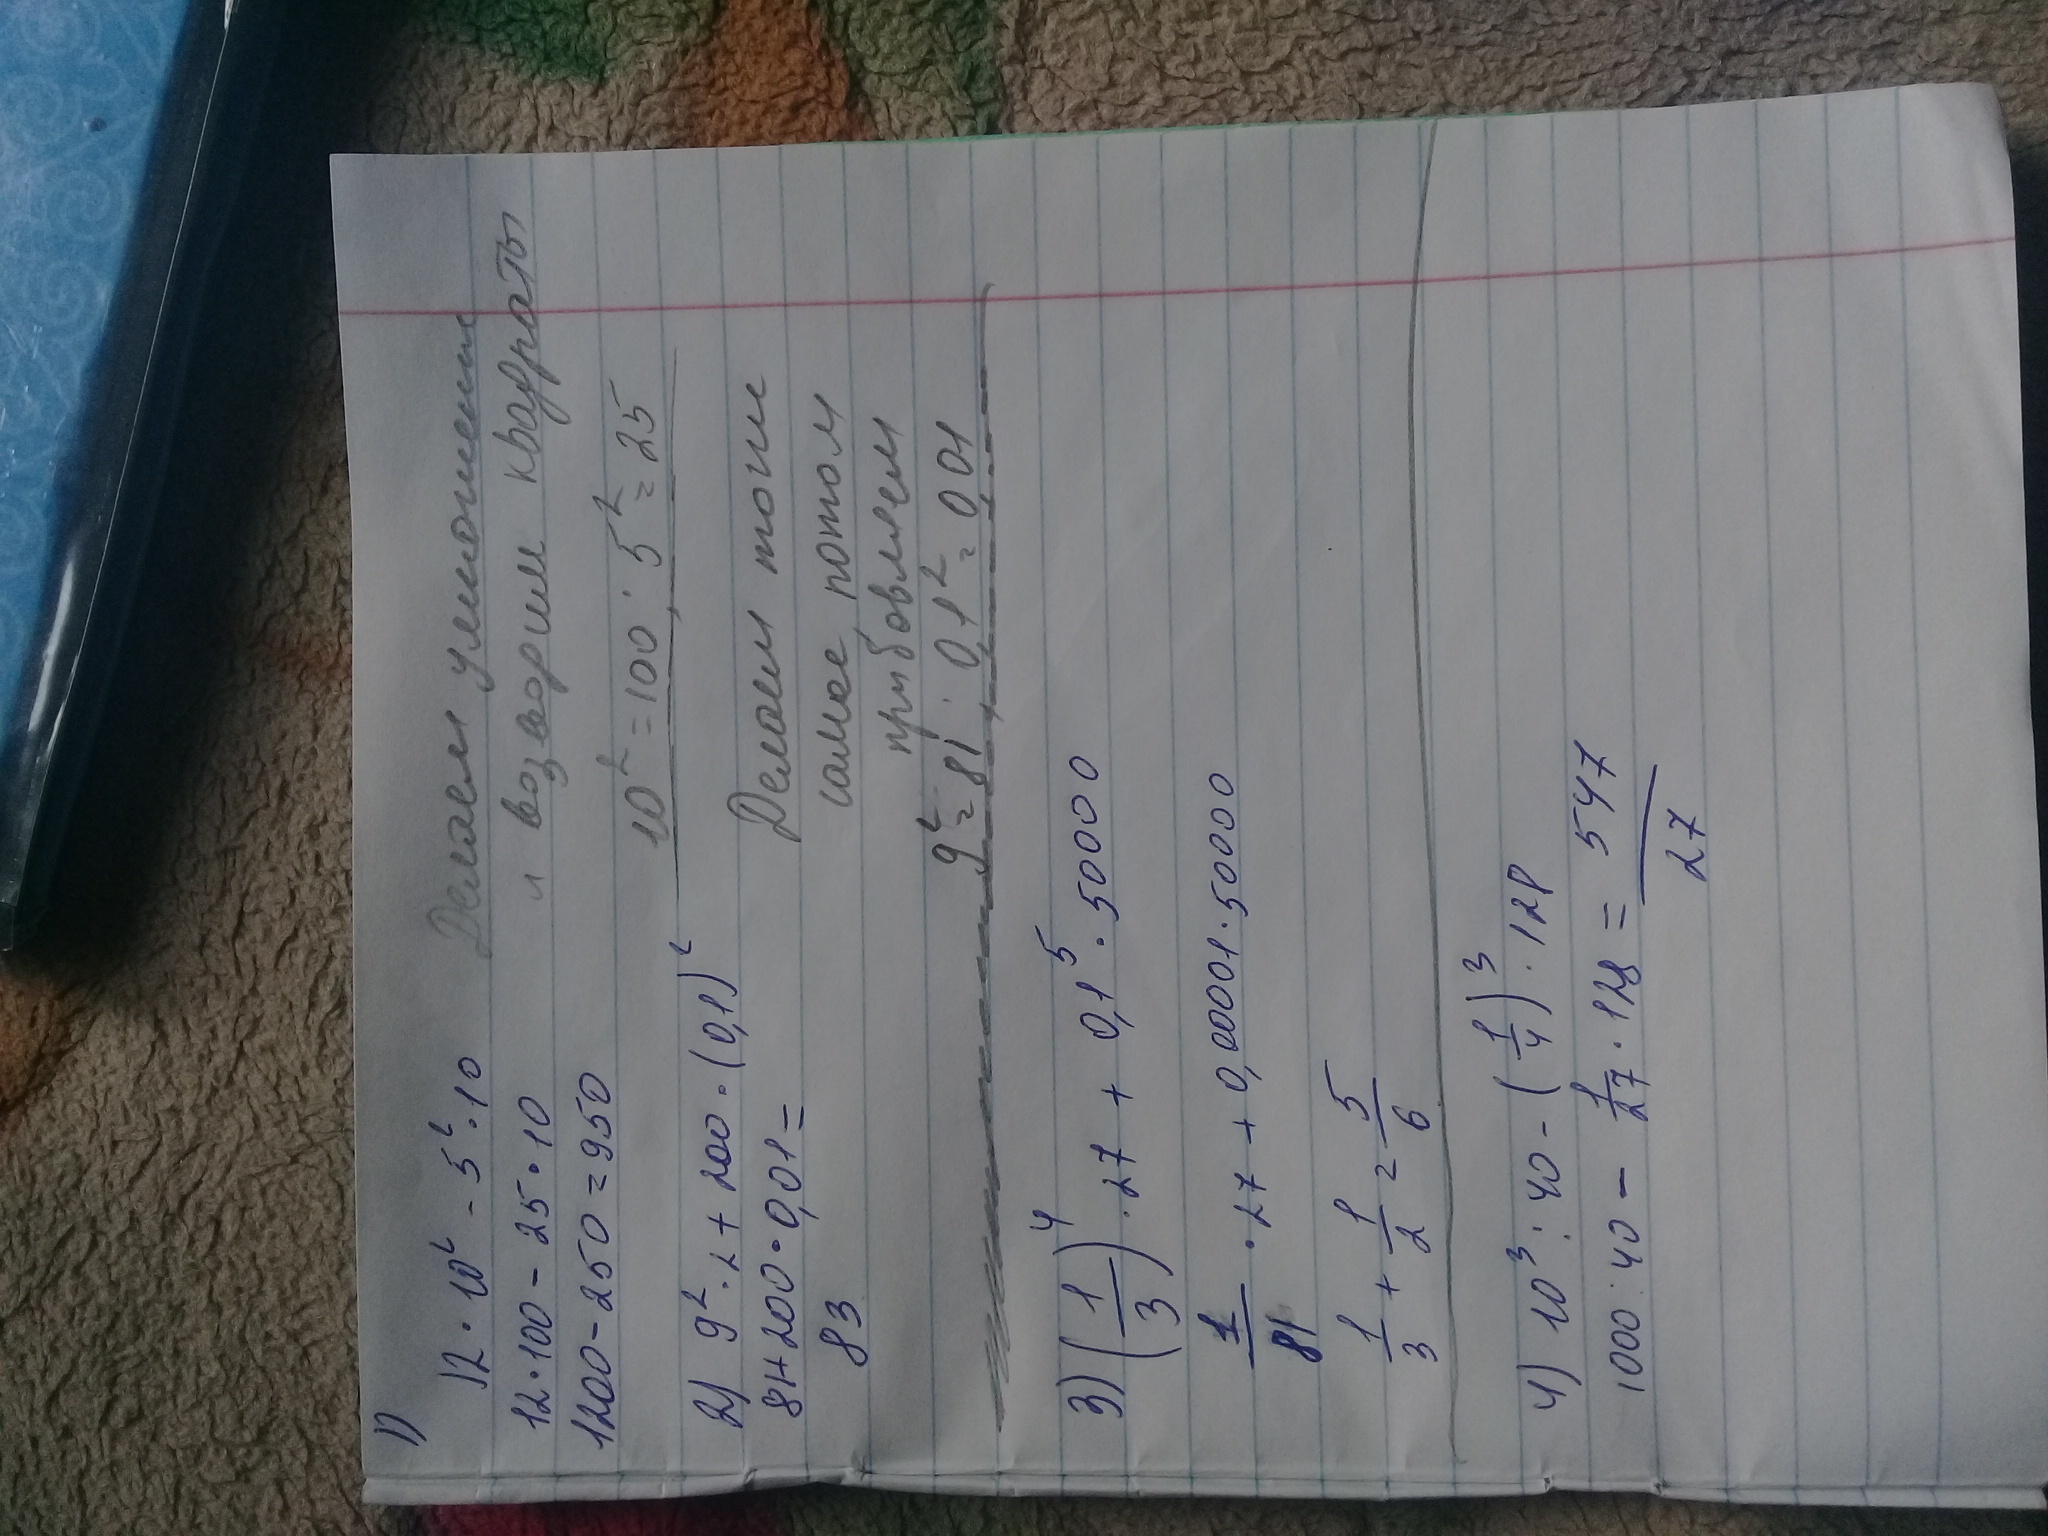 1)
12 · 10² - 5² · 10
12 · 100 - 25 · 10
1200 - 250 = 950
Делаем умножение
и возворим квадраты
10² = 100 ; 5² = 25
2) 9² · 2 + 200 · (0,1)²
81+200 · 0,01 =
83
Делаем тоже
самое, потом
прибовляем
9² = 81 ; 0,1² = 0,01
3) (1/3)⁴ · 27 + 0,1⁵ · 50000
1/81 · 27 + 0,00001 · 50000
1/3 + 1/2 = 5/6
4) 10³ : 40 - (1/4)³ · 128
1000 : 40 - 1/27 · 128 = 547/27